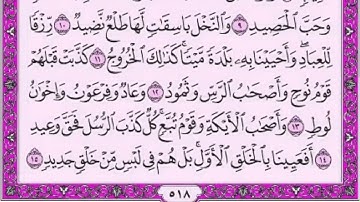 وَحَبَّ ٱلْحَصِيدِ ٩ وَٱلنَّخْلَ بَاسِقَٰتٍ لَّهَا طَلْعٌ نَّضِيدٌ ١٠ رِّزْقًا
لِّلْعِبَادِ وَأَحْيَيْنَا بِهِۦ بَلْدَةً مَّيْتًا كَذَٰلِكَ ٱلْخُرُوجُ ١١ كَذَّبَتْ قَبْلَهُمْ
قَوْمُ نُوحٍ وَأَصْحَٰبُ ٱلرَّسِّ وَثَمُودُ ١٢ وَعَادٌ وَفِرْعَوْنُ وَإِخْوَٰنُ
لُوطٍ ١٣ وَأَصْحَٰبُ ٱلْأَيْكَةِ وَقَوْمُ تُبَّعٍ كُلٌّ كَذَّبَ ٱلرُّسُلَ فَحَقَّ وَعِيدِ
١٤ أَفَعَيِينَا بِٱلْخَلْقِ ٱلْأَوَّلِ بَلْ هُمْ فِى لَبْسٍ مِّنْ خَلْقٍ جَدِيدٍ ١٥
٥١٨